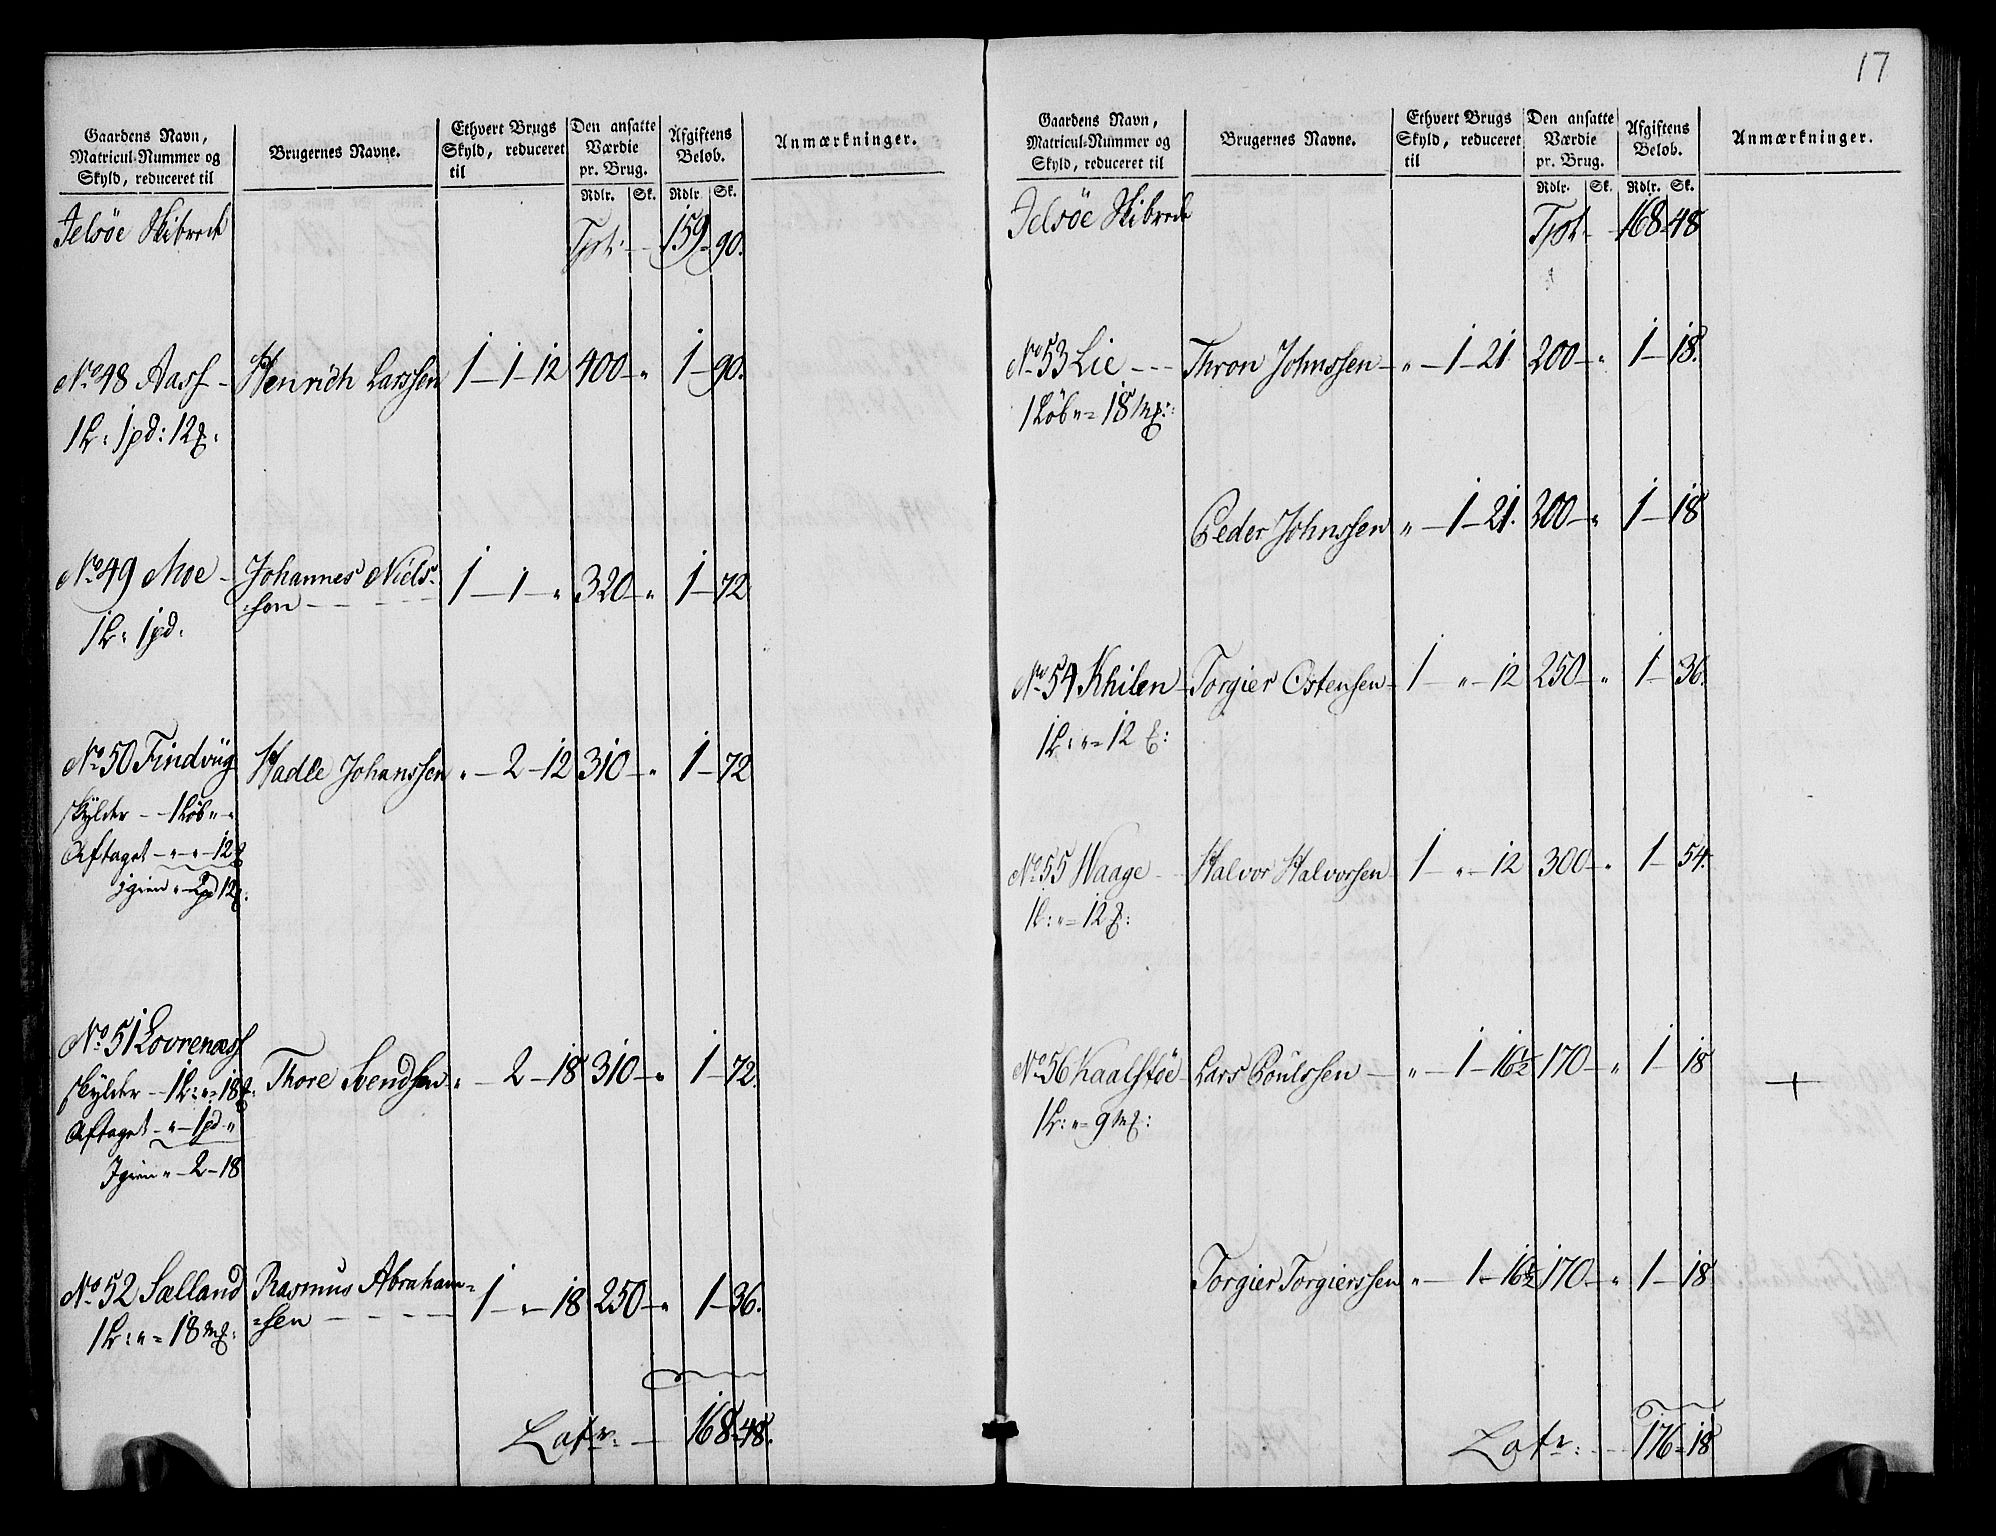 17
Gaardens Navn,
Matricul-Nummer og
Skyld, reduceret til
Brugernes Navne.
Ethvert Brugs
Skyld, reduceret
til
Den ansatte
Værdie
pr. Brug.
Rdlr. Sk.
Afgiftens
Beløb.
Rdlr. Sk.
Anmærkninger.
Jelsøe Skibrede
Tpt: 159 - 90.
No 48 Aass - Henrich Larssen 1 - 1 - 12 400 - " 1 - 90.
1 L: 1 pd: 12 
No 49 Moe - Johannes Niels-
sen - - - - 1 - 1 - " 320 - " 1 - 72
1 L: 1 pd:
No 50 Findvüg Hadle Johanssen " - 2 - 12 310 - " 1 - 72
skylder - - 1 Løb " - "
Aftaget - " - " - 12
Igien " - 2 pd 12
No 51 Lovrenæss Thore Svendsen " - 2 - 18 310 - " 1 - 72.
skylder - 1 L: " - 18
Aftaget - " - 1 pd "
Igien " - 2 - 18
No 52 Sælland Rasmus Abraham=
=sen - - - - 1 - " - 18 250 - " 1 - 36.
1 L: " = 18 
Latr: - 168 - 48.
Gaardens Navn,
Matricul-Nummer og
Skyld, reduceret til
Brugernes Navne.
Ethvert Brugs
Skyld, reduceret
til
Den ansatte
Værdie
pr. Brug.
Rdlr. Sk.
Afgiftens
Beløb.
Rdlr. Sk.
Anmærkninger.
Jelsøe Skibrede
Tpt - 168 - 48
No 53 Lie - - - Thron Johnssen - " - 1 - 21 200 - " 1 - 18.
1 Løb " = 18 
Peder Johnssen " - 1 - 21. 200 - " 1 - 18
No 54 Khilen - Torgier Ostensen - 1 - " - 12 250 - " 1 - 36.
1 L: " = 12 
No 55 Waage - Halvor Halvorsen 1 - " - 12 300 - " 1 - 54.
1 L: " = 12 
No 56 Kaalstøe Lars Poülssen - " - 1 - 16½ 170 - " 1 - 18 +
1 L: " = 9 
Torgier Torgierssen " - 1 - 16½ 170 - " 1 - 18
Latr: - - 176 - 18